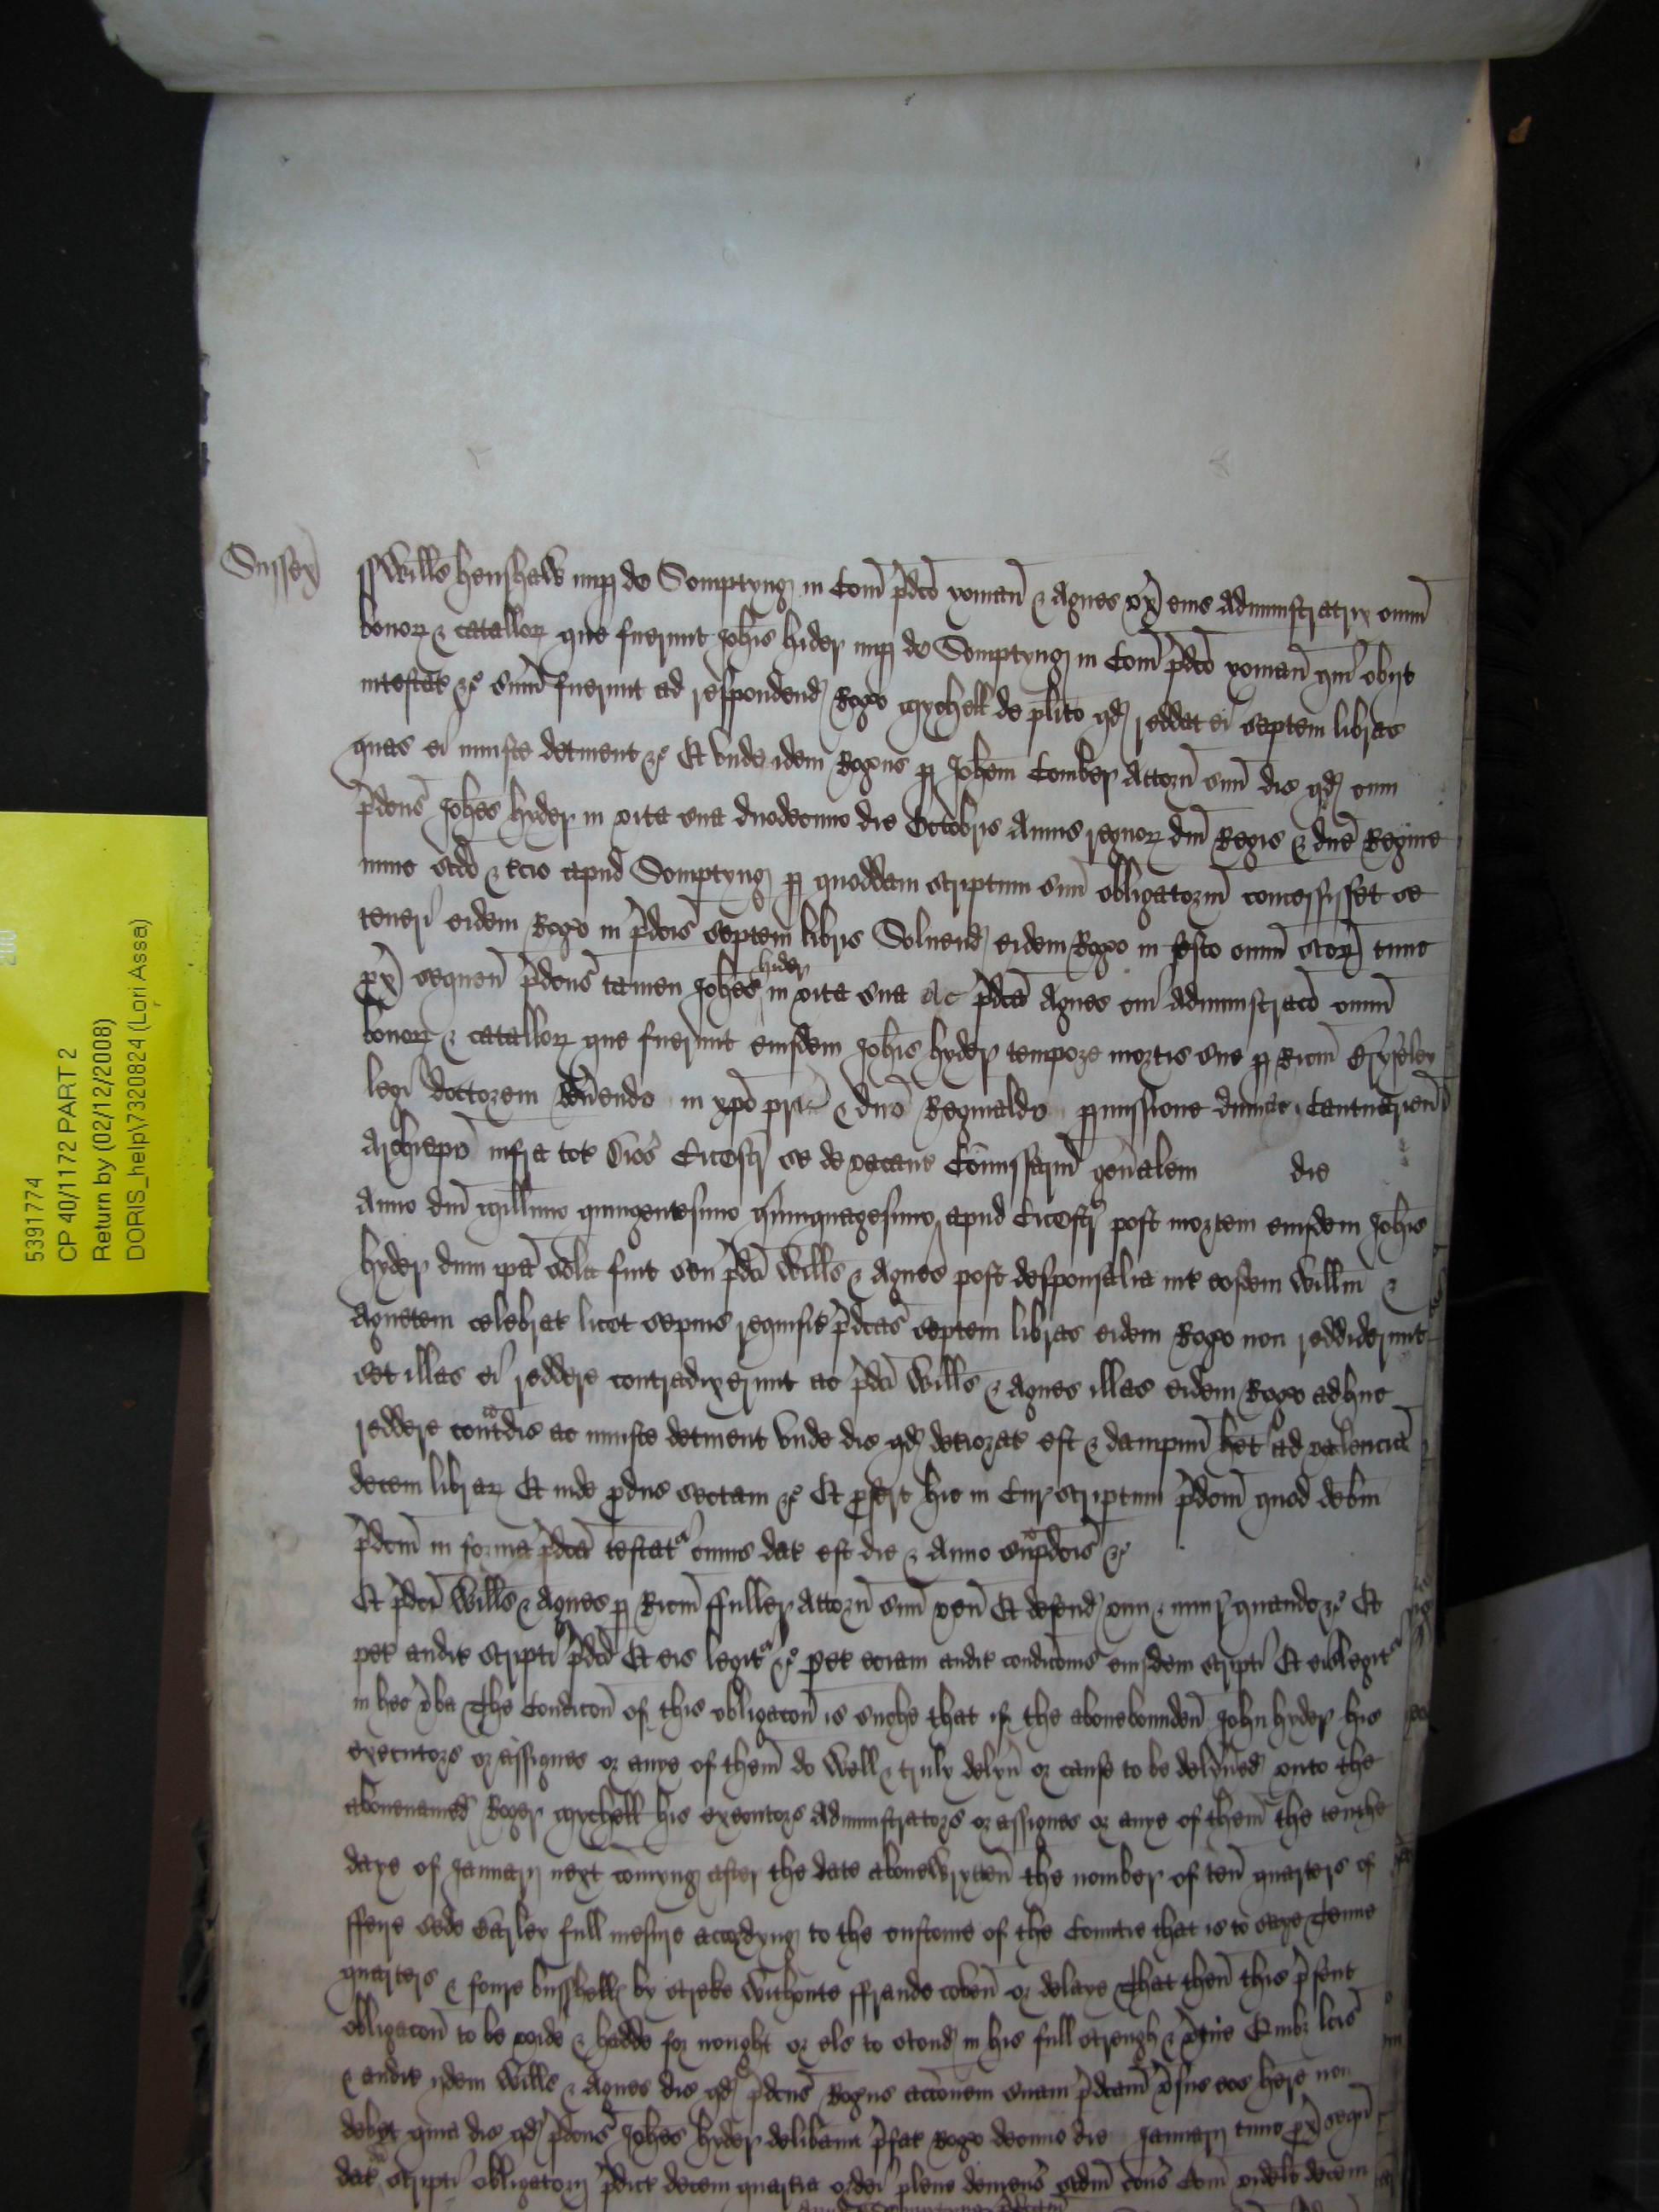 5391774
CP 40/1172 PART 2
Return by (02/12/2008)
DORIS_help\7320824 (Lori Assa)
Sussex
ss Willms henshaw nup de Somptyng in Com p̄dco yoman & Agnes ux eius Administratrix omn
bonor & catallor que fuerunt Johis hider nup de Somptyng in Com p̄dco yoman qui obijt
intestat &c sum fuerunt ad respondend Rogo Mychell de plito qd reddat ei septem libras
quas ei iniuste detinent &c Et unde idem Rogus p Johem Comber Attorn suu dic qd cum
p̄dcus Johes hyder in vita sua duodecimo die Octobris Annis regnor dni Regis & dne Regine
nunc scdo & tcio apud Somptyng p quoddam scriptum suu obligatoriu concessisset se
teneri eidem Rogo in p̄dcis septem libris Solvend eidem Rogo in festo omn scor tunc
px sequen p̄dcus tamen Johes hider in vita sua ac p̄dca Agnes cui Administraco omn
bonor & catallor que fuerunt eiusdem Johis hyder tempore mortis sue p Ricm
legu doctorem in xpo pri & dno Reginaldo pmissione divina Cantuarien
Archiepo infra Cicestr sede vacant Comissariu genalem die
Anno dni millimo quingentesimo quinquagesimo apud Cicestr post mortem eiusdem Johis
hyder dum ipa sola fuit seu p̄dci Willms & Agnes post desponsalia int eosdem Willm &
Agnetem celebrat licet sepius requisit p̄dcas septem libras eidem Rogo non reddiderunt
set illas ei reddere contradixerunt ac p̄dci Willms & Agnes illas eidem Rogo adhuc
reddere contdic ac iniuste detinent unde dic qd deteriorat est & dampnu het ad valencia
decem librar Et inde pduc sectam &c Et pfert hic in Cur scriptum p̄dcm quod debm
p̄dcm in forma p̄dca testat cuius dat est die & Anno sup̄dcis &c
Et p̄dci Willms & Agnes p Ricm ffuller Attorn suu ven Et defend vim & iniur quando &c Et
pet audit scripti p̄dci Et eis legit &c pet eciam audit condicois eiusdem scripti Et eis legit
in hec vba The Condicon of this obligacon is suche that if the abovebounden John hyder his
executors or assignes or anye of them do well & truly delyv or cause to be delyved unto the
abovenamed Roger Mychell his executors Administrators or assignes or anye of them the tenthe
daye of January next comyng after the date abovewrytten the nomber of ten quarters of
ffeire sede barley full mesure accordyng to the custome of the Countie that is to saye Tenne
quarters & foure busshells by streke withoute ffraude coven or delaye That then this p̄sent
obligacon to be voide & hadde for nought or els to stond in his full strength & vtue Quibz lcis
& audit ijdem Willms & Agnes dic qd p̄dcus Rogus accionem suam p̄dcam vsus eos here non
debet quia dic qd p̄dcus Johes hyder delibavit p̄fat Rogo decimo die Januarij tunc px sequ
dat scripti obligatorij p̄dict decem quartia ordei plene mensur scdm cons Com videlt decem